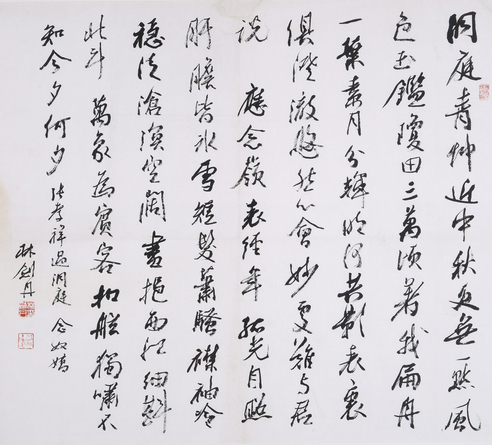 洞庭青草近中秋更無一點風
色玉鑑瓊田三萬頃著我扁舟
一葉素月分輝明河共影表裏
俱澄澈悠然心會妙處難與君
說 應念嶺表經年孤光自照
肝膽皆冰雪短髮蕭騷襟袖冷
穩泛滄溟空闊盡挹西江細斟
北斗 萬象為賓客扣舷獨嘯不
知今夕何夕 張孝祥過洞庭 念奴嬌
林劍丹